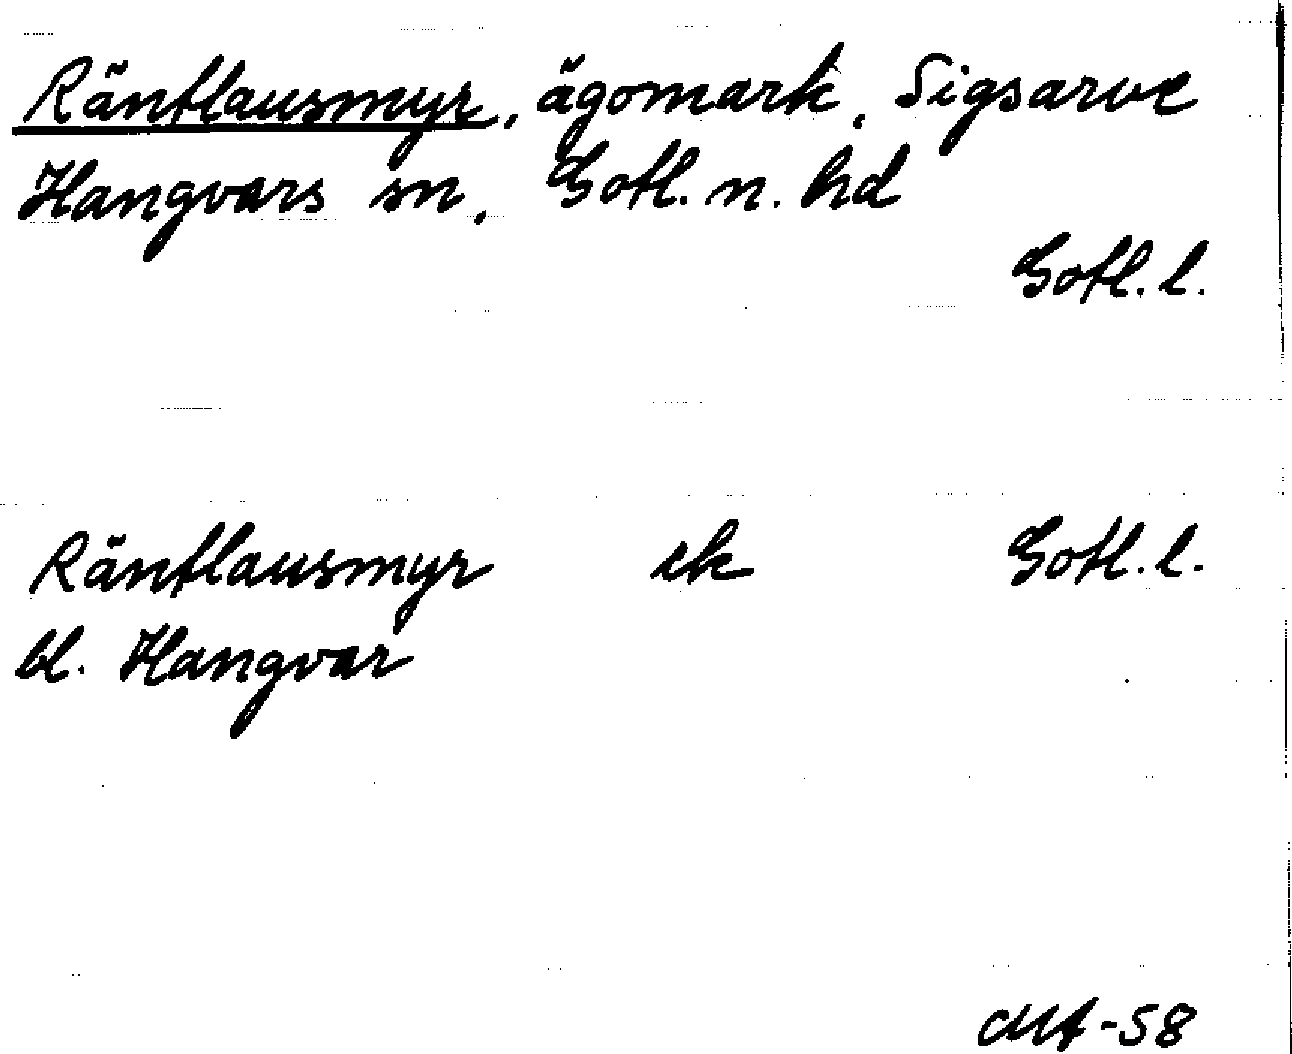 Räntlausmyr, ägomark, Sigsarve
Hangvars sn. Gotl. n. hd
Gotl. l.
Räntlausmyr ek Gotl. l.
bl. Hangvar
-58